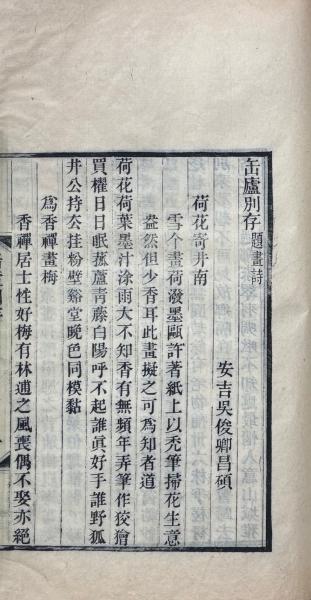 缶廬別存題畫詩
安吉吳俊卿昌碩
荷花寄井南
雪个畫荷潑墨甌許著紙上以禿筆掃花生意
盎然但少香耳此畫擬之可為知者道
荷花荷葉墨汁涂雨大不知香有無頻年弄筆作狡獪
買櫂日日眠菰蘆青藤白陽呼不起誰眞好手誰野狐
井公持去挂粉壁谿堂晚色同模黏
為香禪畫梅
香禪居士性好梅有林逋之風喪偶不娶亦絕